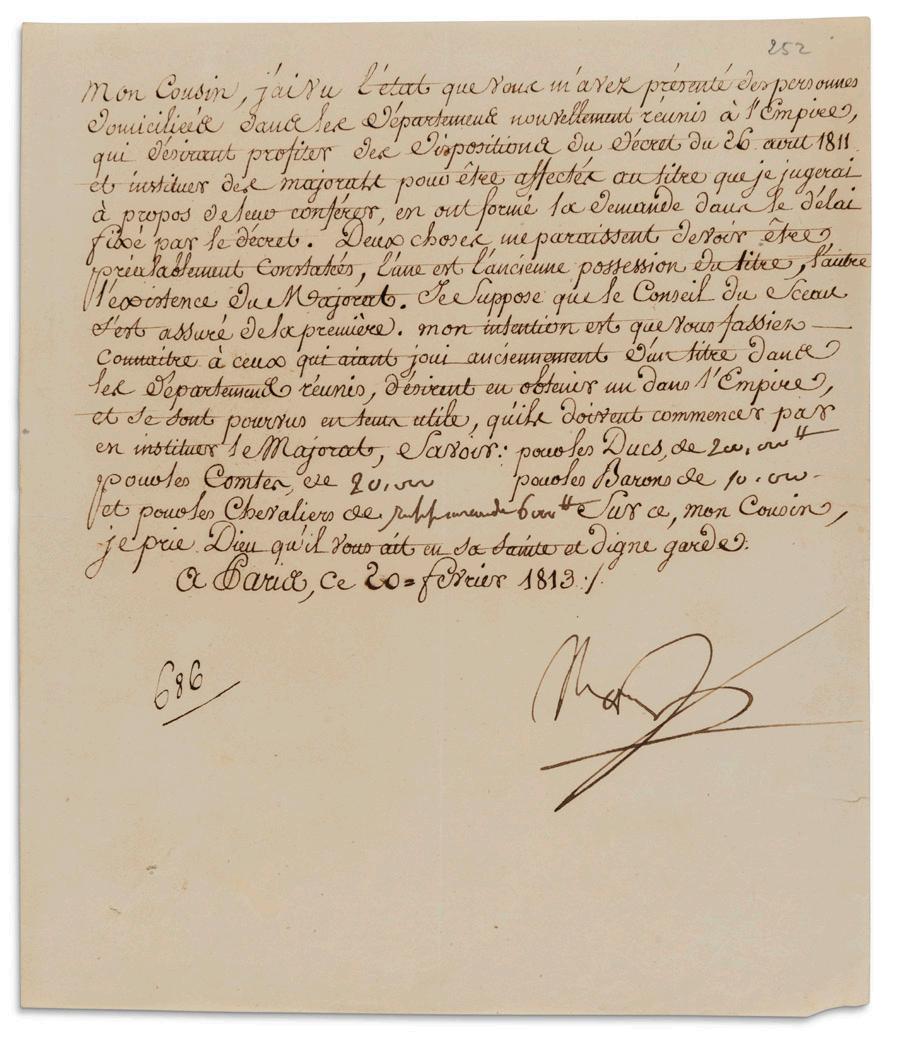 252
Mon Cousin, j'ai vu l'état que vous m'avez présenté des personnes
domiciliées dans les Départemens nouvellement réunis à l'Empire,
qui désirant profiter des Dispositions du Décret du 26 avril 1811
et instituer des majorats pour être affectés au titre que je jugerai
à propos de leur conférer, en ont formé la demande dans le délai
fixé par le décret. Deux choses me paraissent devoir être
préalablement constatées, l'une est l'ancienne possession du titre, l'autre
l'existence du Majorat. Je suppose que le Conseil du Sceau
s'est assuré de la première. mon intention est que vous fassiez
connaitre à ceux qui aiant joui anciennement d'un titre dans
les Départemens réunis, désirent en obtenir un dans l'Empire,
et se sont pourvus en tems utile, qu'ils doivent commencer par
en instituer le Majorat, Savoir: pour les Ducs, de 200,000
pour les Comtes, de 20,000 pour les Barons de 10,000
et pour les Chevaliers de Sur ce, mon Cousin,
je prie Dieu qu'il vous ait en sa sainte et digne garde.
A Paris, ce 20 février 1813 ./.
686